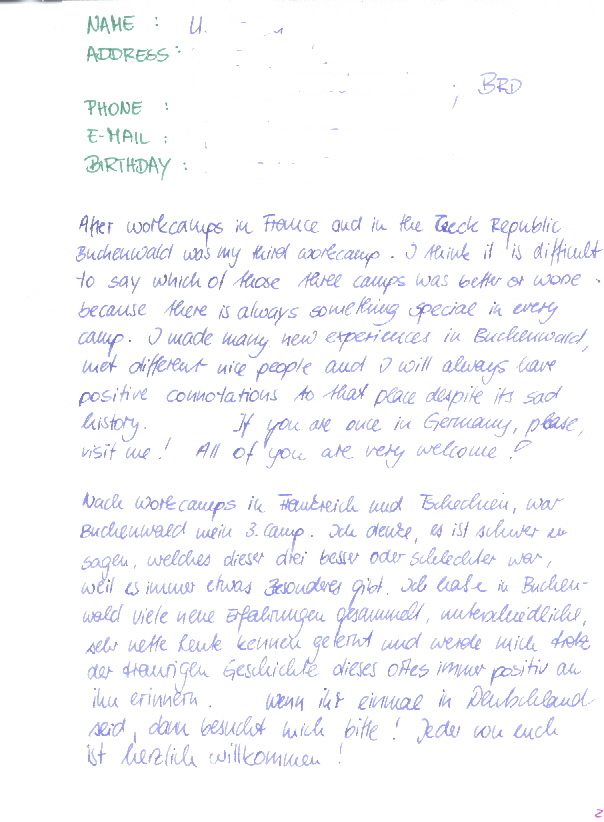 NAME : U.
ADDRESS :
; BRD
PHONE :
E-MAIL :
BIRTHDAY :
After workcamps in France and in the Tzeck Republic
Buchenwald was my third workcamp. I think it is difficult
to say which of those three camps was better or worse
because there is always something special in every
camp. I made many new experiences in Buchenwald,
met different nice people and I will always have
positive connotations to that place despite its sad
history. If you are once in Germany, please,
visit me! All of you are very welcome!
Nach Workcamps in Frankreich und Tschechien, war
Buchenwald mein 3. Camp. Ich denke, es ist schwer zu
sagen, welches dieser drei besser oder schlechter war,
weil es immer etwas Besonderes gibt. Ich habe in Buchen-
wald viele neue Erfahrungen gesammelt, unterschiedliche,
sehr nette Leute kennen gelernt und werde mich trotz
der traurigen Geschichte dieses Ortes immer positiv an
ihn erinnern. Wenn ihr einmal in Deutschland
seid, dann besucht mich bitte! Jeder von euch
ist herzlich willkommen!
2